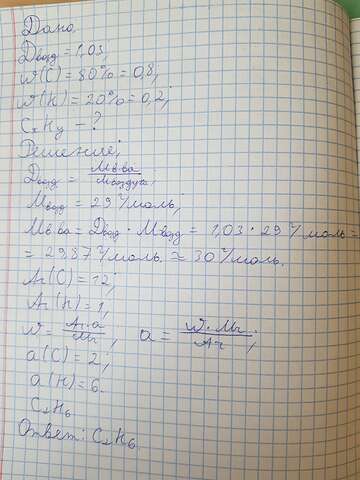 Дано:
Dвозд = 1,03;
ω(C) = 80% = 0,8;
ω(H) = 20% = 0,2;
CxHy - ?
Решение:
Dвозд = Mв-ва / Mвоздуха;
Mвозд = 29 г/моль;
Mв-ва = Dвозд · Mвозд = 1,03 · 29 г/моль =
= 29,87 г/моль ≈ 30 г/моль.
Ar(C) = 12;
Ar(H) = 1;
ω = Ar·a / Mr; a = ω·Mr / Ar;
a(C) = 2;
a(H) = 6.
C2H6
Ответ: C2H6